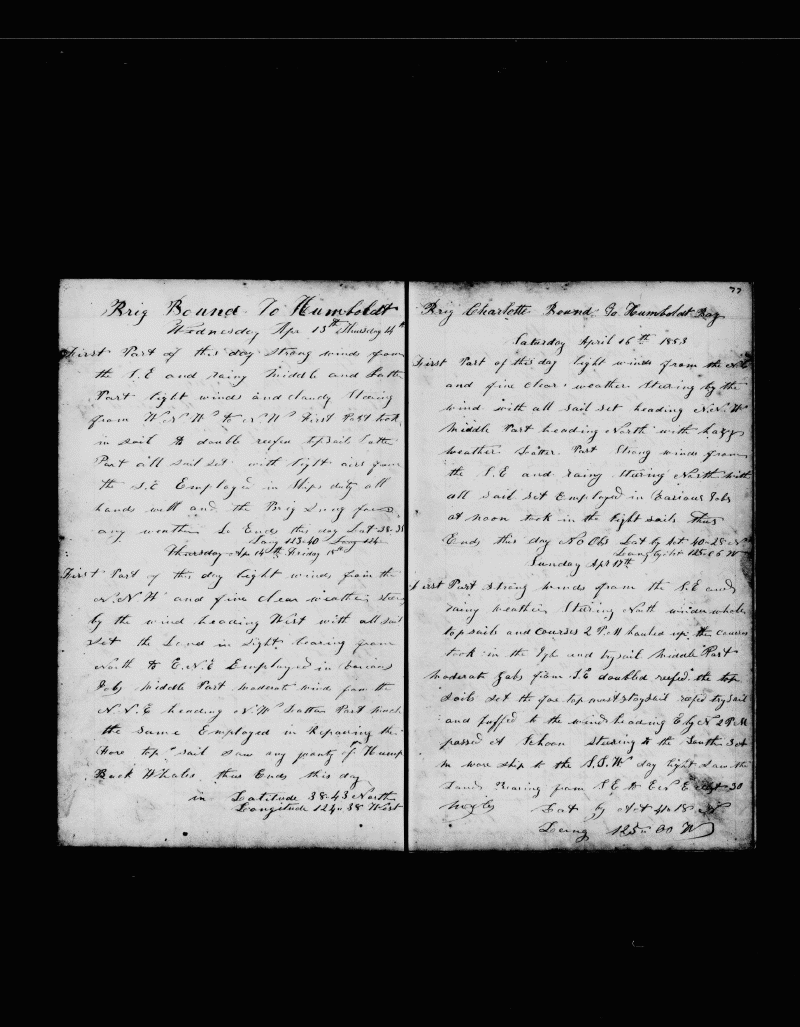 Brig Bound To Humboldt
Wednesday Apr 13th Thursday 14th
First Part of this day Strong winds from
the S.E and rainy Middle and Latter
Part light winds and cloudy Stering
from W.N.W to N.W First Part took
in sail to double reefen topsail Latter
Part all sail set with light airs from
the S.E Employed in Ships duty all
hands well and the Brig
any weather So Ends this day Lat 38-38
Long 123-40
Thursday Apr 14th Friday 15th
First Part of this day light winds from the
N.N.W and fine clear weather stering
by the wind heading West with all sail
set the Land in Sight bearing from
North to E.N.E Employed in various
Jobs Middle Part moderate wind from the
N.N.E heading N.W Latter Part much
the same Employed in Repairing the
Fore top sail Saw any
Hump
Back Whales thus Ends this day
in Latitude 38-43 North
Longitude 124" 38 West
77
Brig Charlotte Bound To Humboldt Bay
Saturday April 16th 1853
First Part of this day light winds from the
and fine clear weather Stering by the
wind with all sail set heading N.N.W
Middle Part heading North with hazy
weather Latter Part Strong winds from
the S.E and rainy Stering North with
all sail set Employed in Various Jobs
at noon took in the light sails Thus
Ends this day No Obs Lat by Act 40-28 N
Long by Act 125-06 W
Sunday Apr 17th
First Part strong winds from the S.E and
rainy weather Stering North under whole
top sails and courses 2 P.M hauled up the courses
took in the Jgb and trysail Middle Part
moderate Gales from S.E doubled reefed the top
sails set the fore top mast staysail reefed trysail
and
to the wind heading E by N 2 P.M
passed A Schoon Stearing to the South 3
wore ship to the S.S.W day light saw the
Land Bearing from S.E to E.N.E 30
Lat by Act 41-18 N
Long 125" 00 W